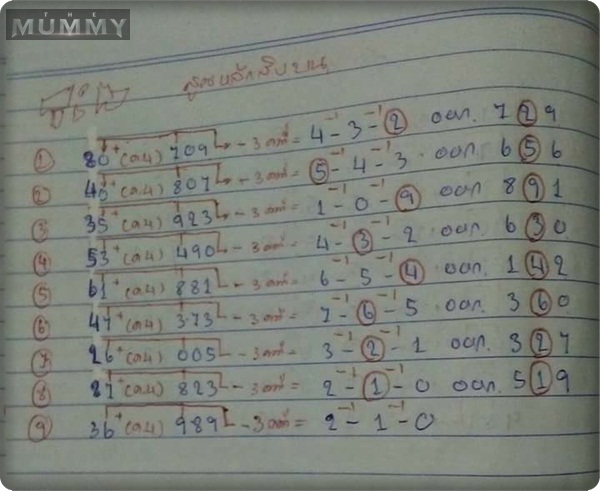 THE
MUMMY
สูตรหลักสิบบน
① 80+(ลบ) 709 - 3 ตัว = 4-3-2 ออก. 729
② 46+(ลบ) 807 - 3 ตัว = 5-4-3 ออก. 656
③ 35+(ลบ) 923 - 3 ตัว = 1-0-9 ออก. 891
④ 53+(ลบ) 490 - 3 ตัว = 4-3-2 ออก. 630
⑤ 61+(ลบ) 881 - 3 ตัว = 6-5-4 ออก. 142
⑥ 47+(ลบ) 373 - 3 ตัว = 7-6-5 ออก. 360
⑦ 26+(ลบ) 005 - 3 ตัว = 3-2-1 ออก. 327
⑧ 27+(ลบ) 823 - 3 ตัว = 2-1-0 ออก. 519
⑨ 36+(ลบ) 989 - 3 ตัว = 2-1-0